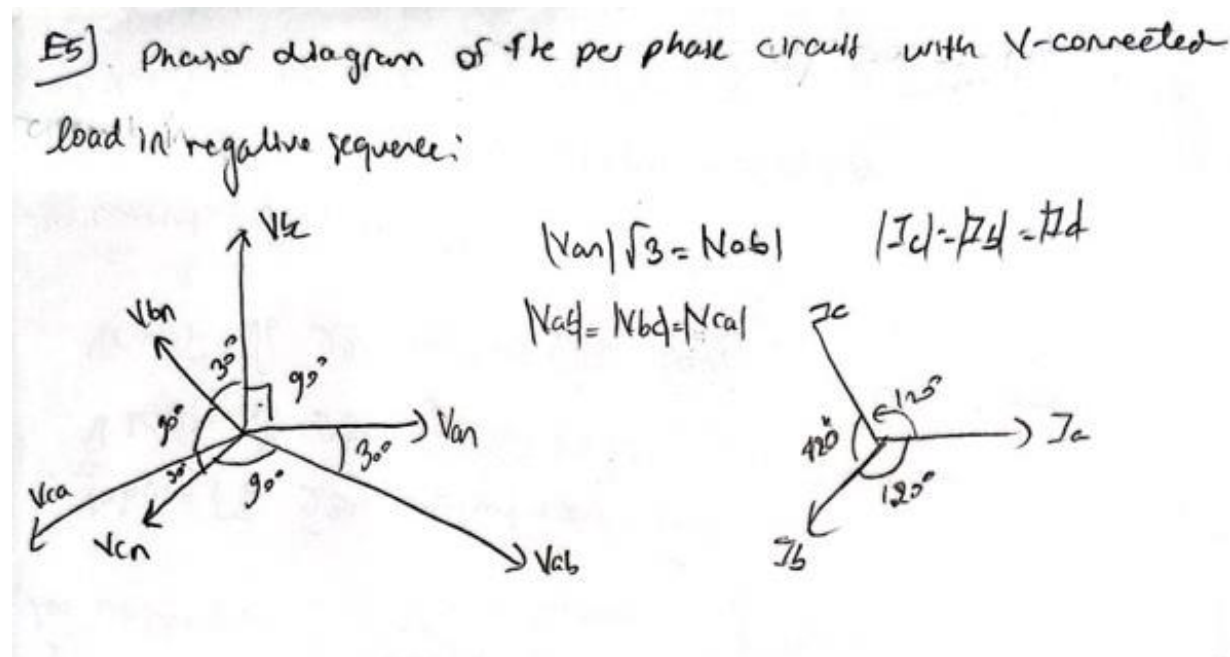 E5) Phasor diagram of the per phase circuit with Y-connected
load in negative sequence:
Vbc
|Van|√3 = |Vab|
|Vab| = |Vbc| = |Vca|
Vbn
30°
90°
Van
90°
30°
30°
90°
Vca
Vcn
Vab
Ic
120°
Ia
120°
120°
Ib